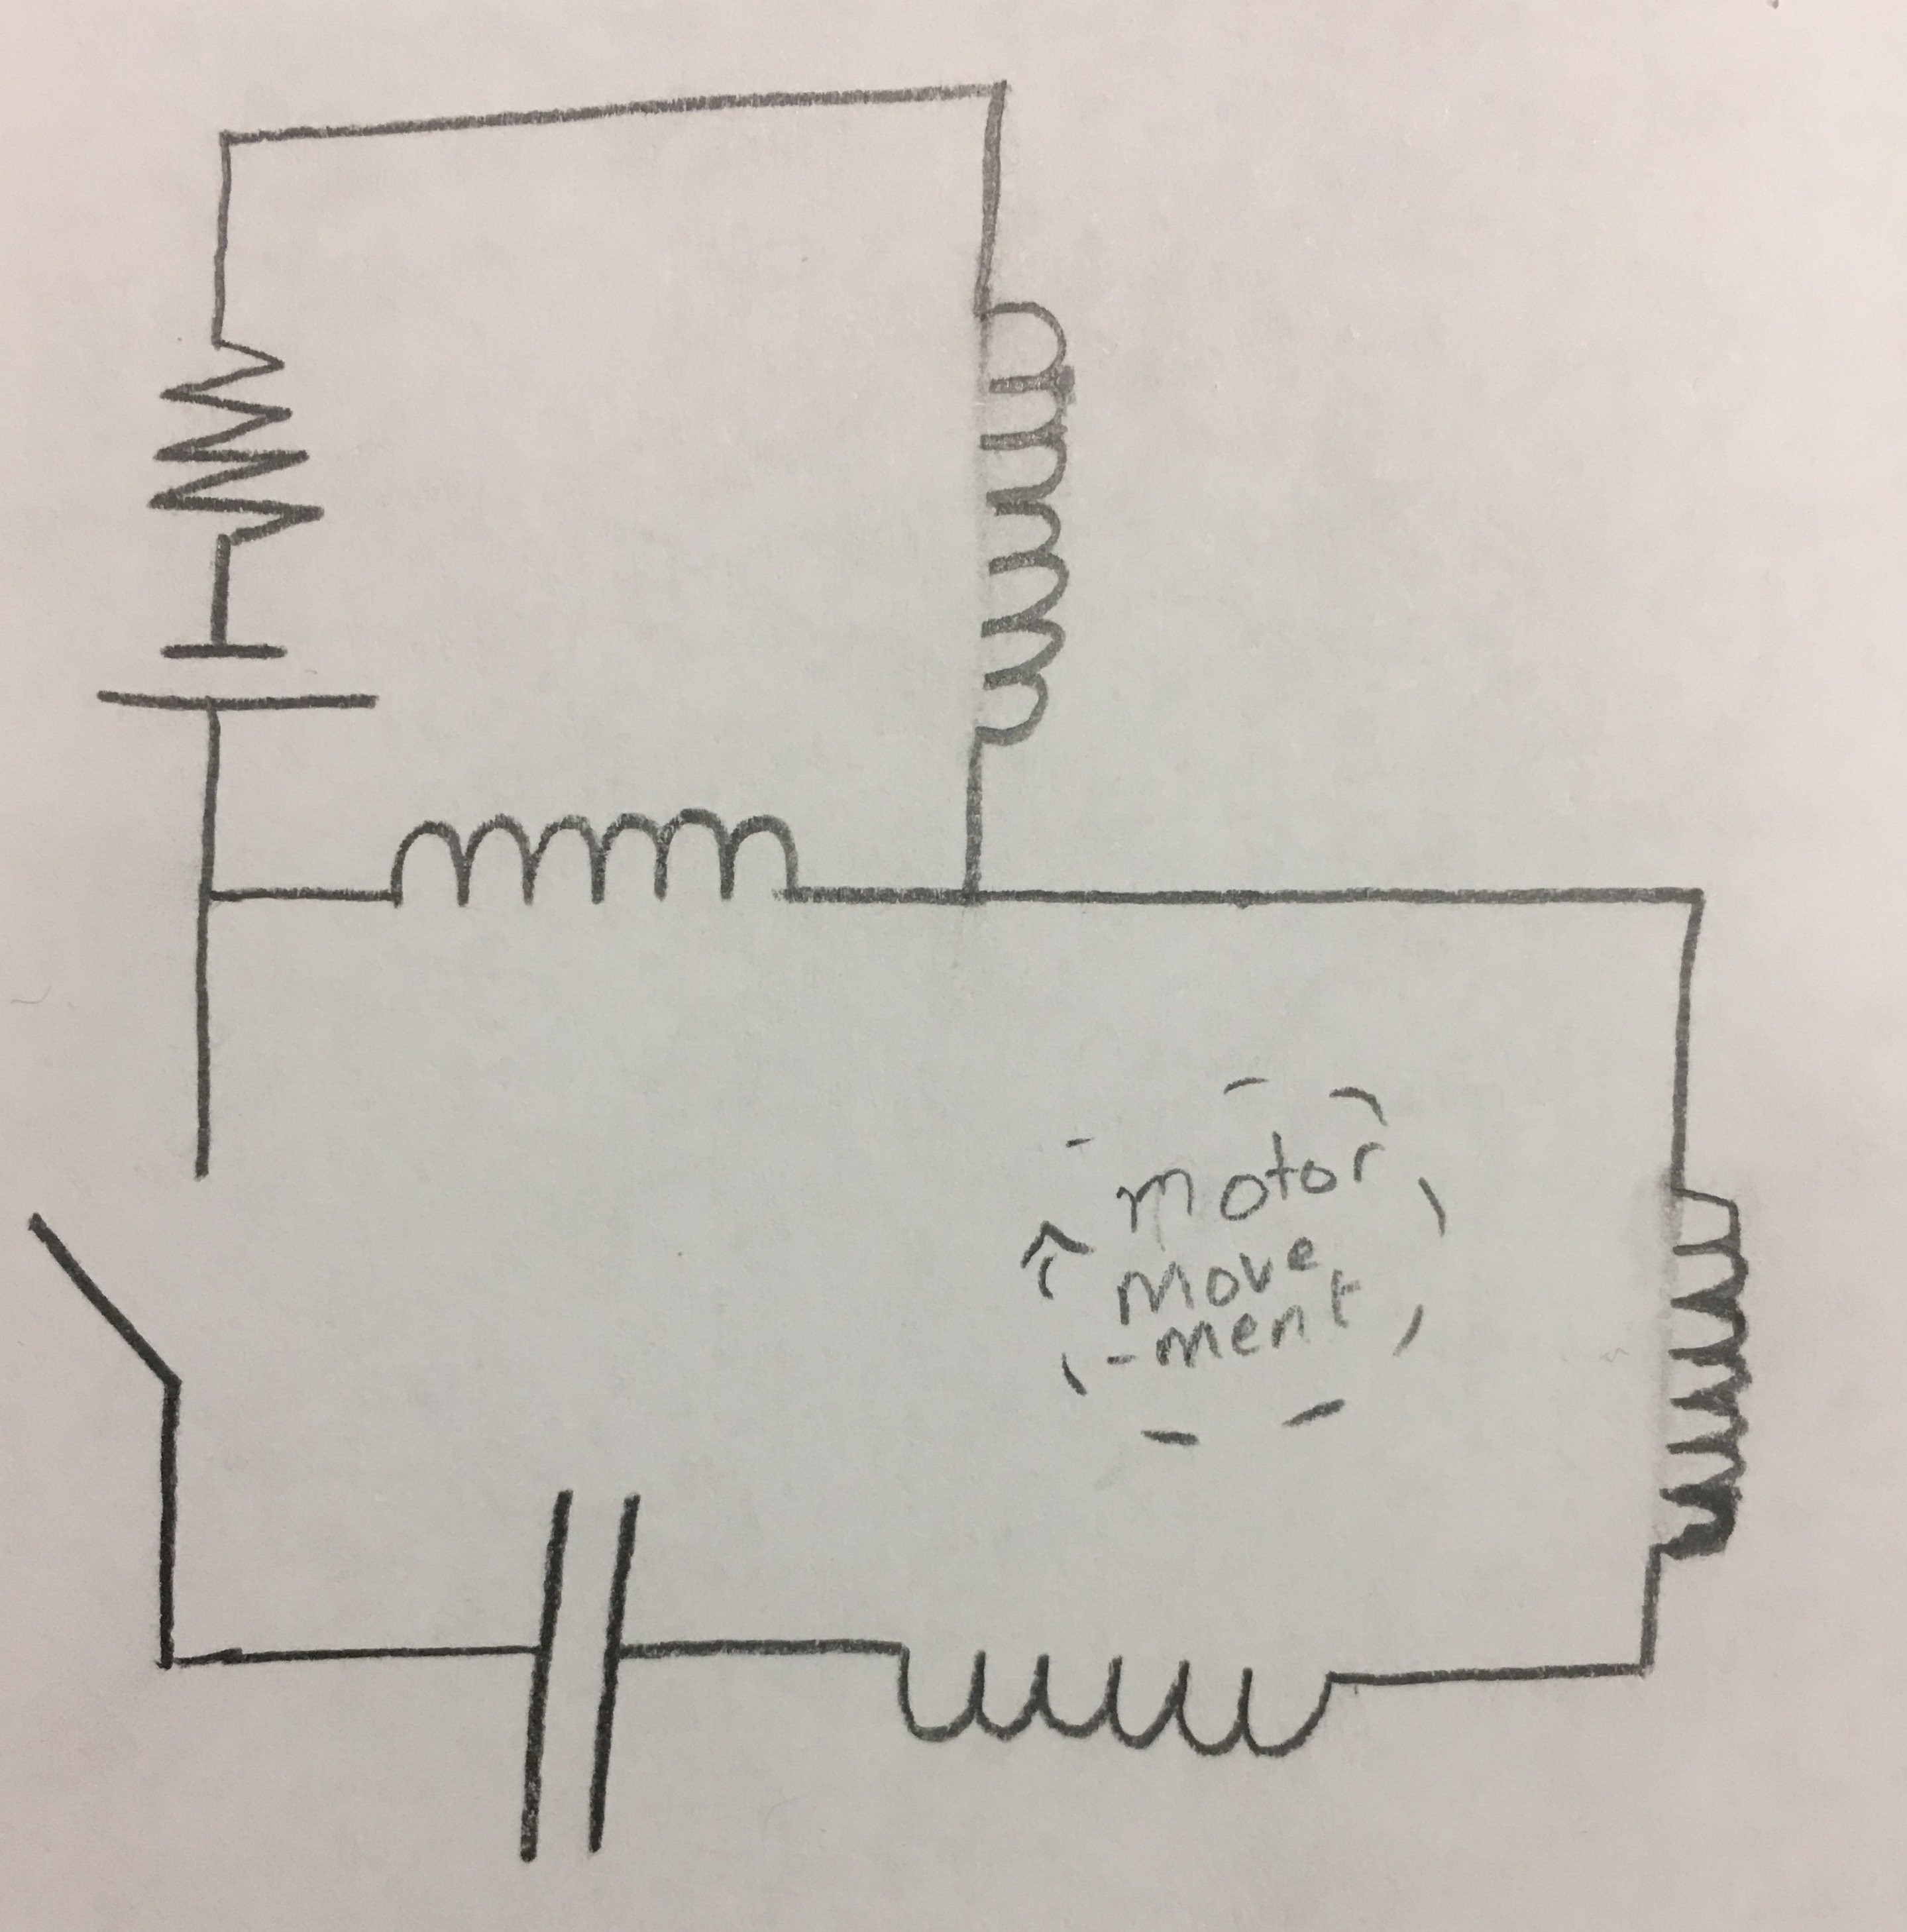 motor
move
-ment